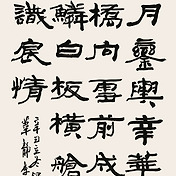 月鑾輿幸華
橋向雲前成
鱗白板橫艙
識宸情
辛丑立冬